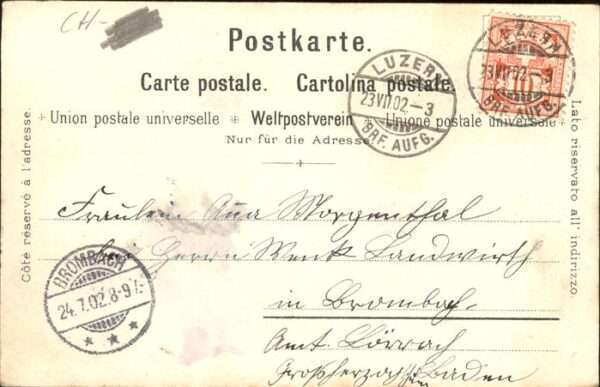 CH-
Postkarte.
Carte postale. Cartolina postale.
Union postale universelle Weltpostverein Unione postale universale
Nur für die Adresse
Côte réservé à l'adresse.
Lato riservato all' indirizzo.
LUZERN
23 VII 02 - 3
BRF. AUFG.
LUZERN
23 VII 02 - 3
BRF. AUFG.
10
Fräulein Ana Morgenthal
bei Herrn Wenk Landwirth
in Brombach.
Amt. Lörrach
Großherzogth. Baden
BROMBACH
24.7.02.8-9V.